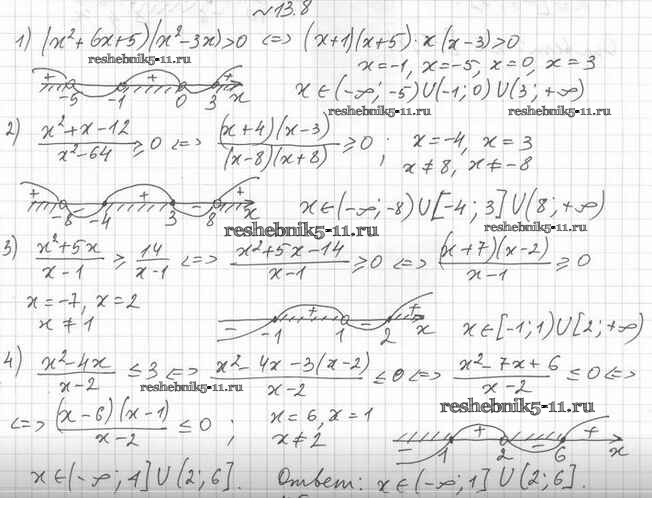 №13.8
1) (x²+6x+5)(x²-3x)>0 <=> (x+1)(x+5)·x(x-3)>0
reshebnik5-11.ru
x=-1, x=-5, x=0, x=3
+ - + - +
-5 -1 0 3 x
x∈(-∞;-5)∪(-1;0)∪(3;+∞)
reshebnik5-11.ru reshebnik5-11.ru
2) (x²+x-12)/(x²-64) ≥ 0 <=> ((x+4)(x-3))/((x-8)(x+8)) ≥ 0 ; x=-4, x=3
x≠8, x≠-8
+ - + - +
-8 -4 3 8 x
x∈(-∞;-8)∪[-4;3]∪(8;+∞)
reshebnik5-11.ru reshebnik5-11.ru
3) (x²+5x)/(x-1) ≥ 14/(x-1) <=> (x²+5x-14)/(x-1) ≥ 0 <=> ((x+7)(x-2))/(x-1) ≥ 0
x=-7, x=2
x≠1
- + - +
-1 1 2 x
x∈[-1;1)∪[2;+∞)
4) (x²-4x)/(x-2) ≤ 3 <=> (x²-4x-3(x-2))/(x-2) ≤ 0 <=> (x²-7x+6)/(x-2) ≤ 0 <=>
reshebnik5-11.ru
reshebnik5-11.ru
<=> ((x-6)(x-1))/(x-2) ≤ 0 ; x=6, x=1
x≠2
- + - +
1 2 6 x
x∈(-∞;1]∪(2;6]. Ответ: x∈(-∞;1]∪(2;6].